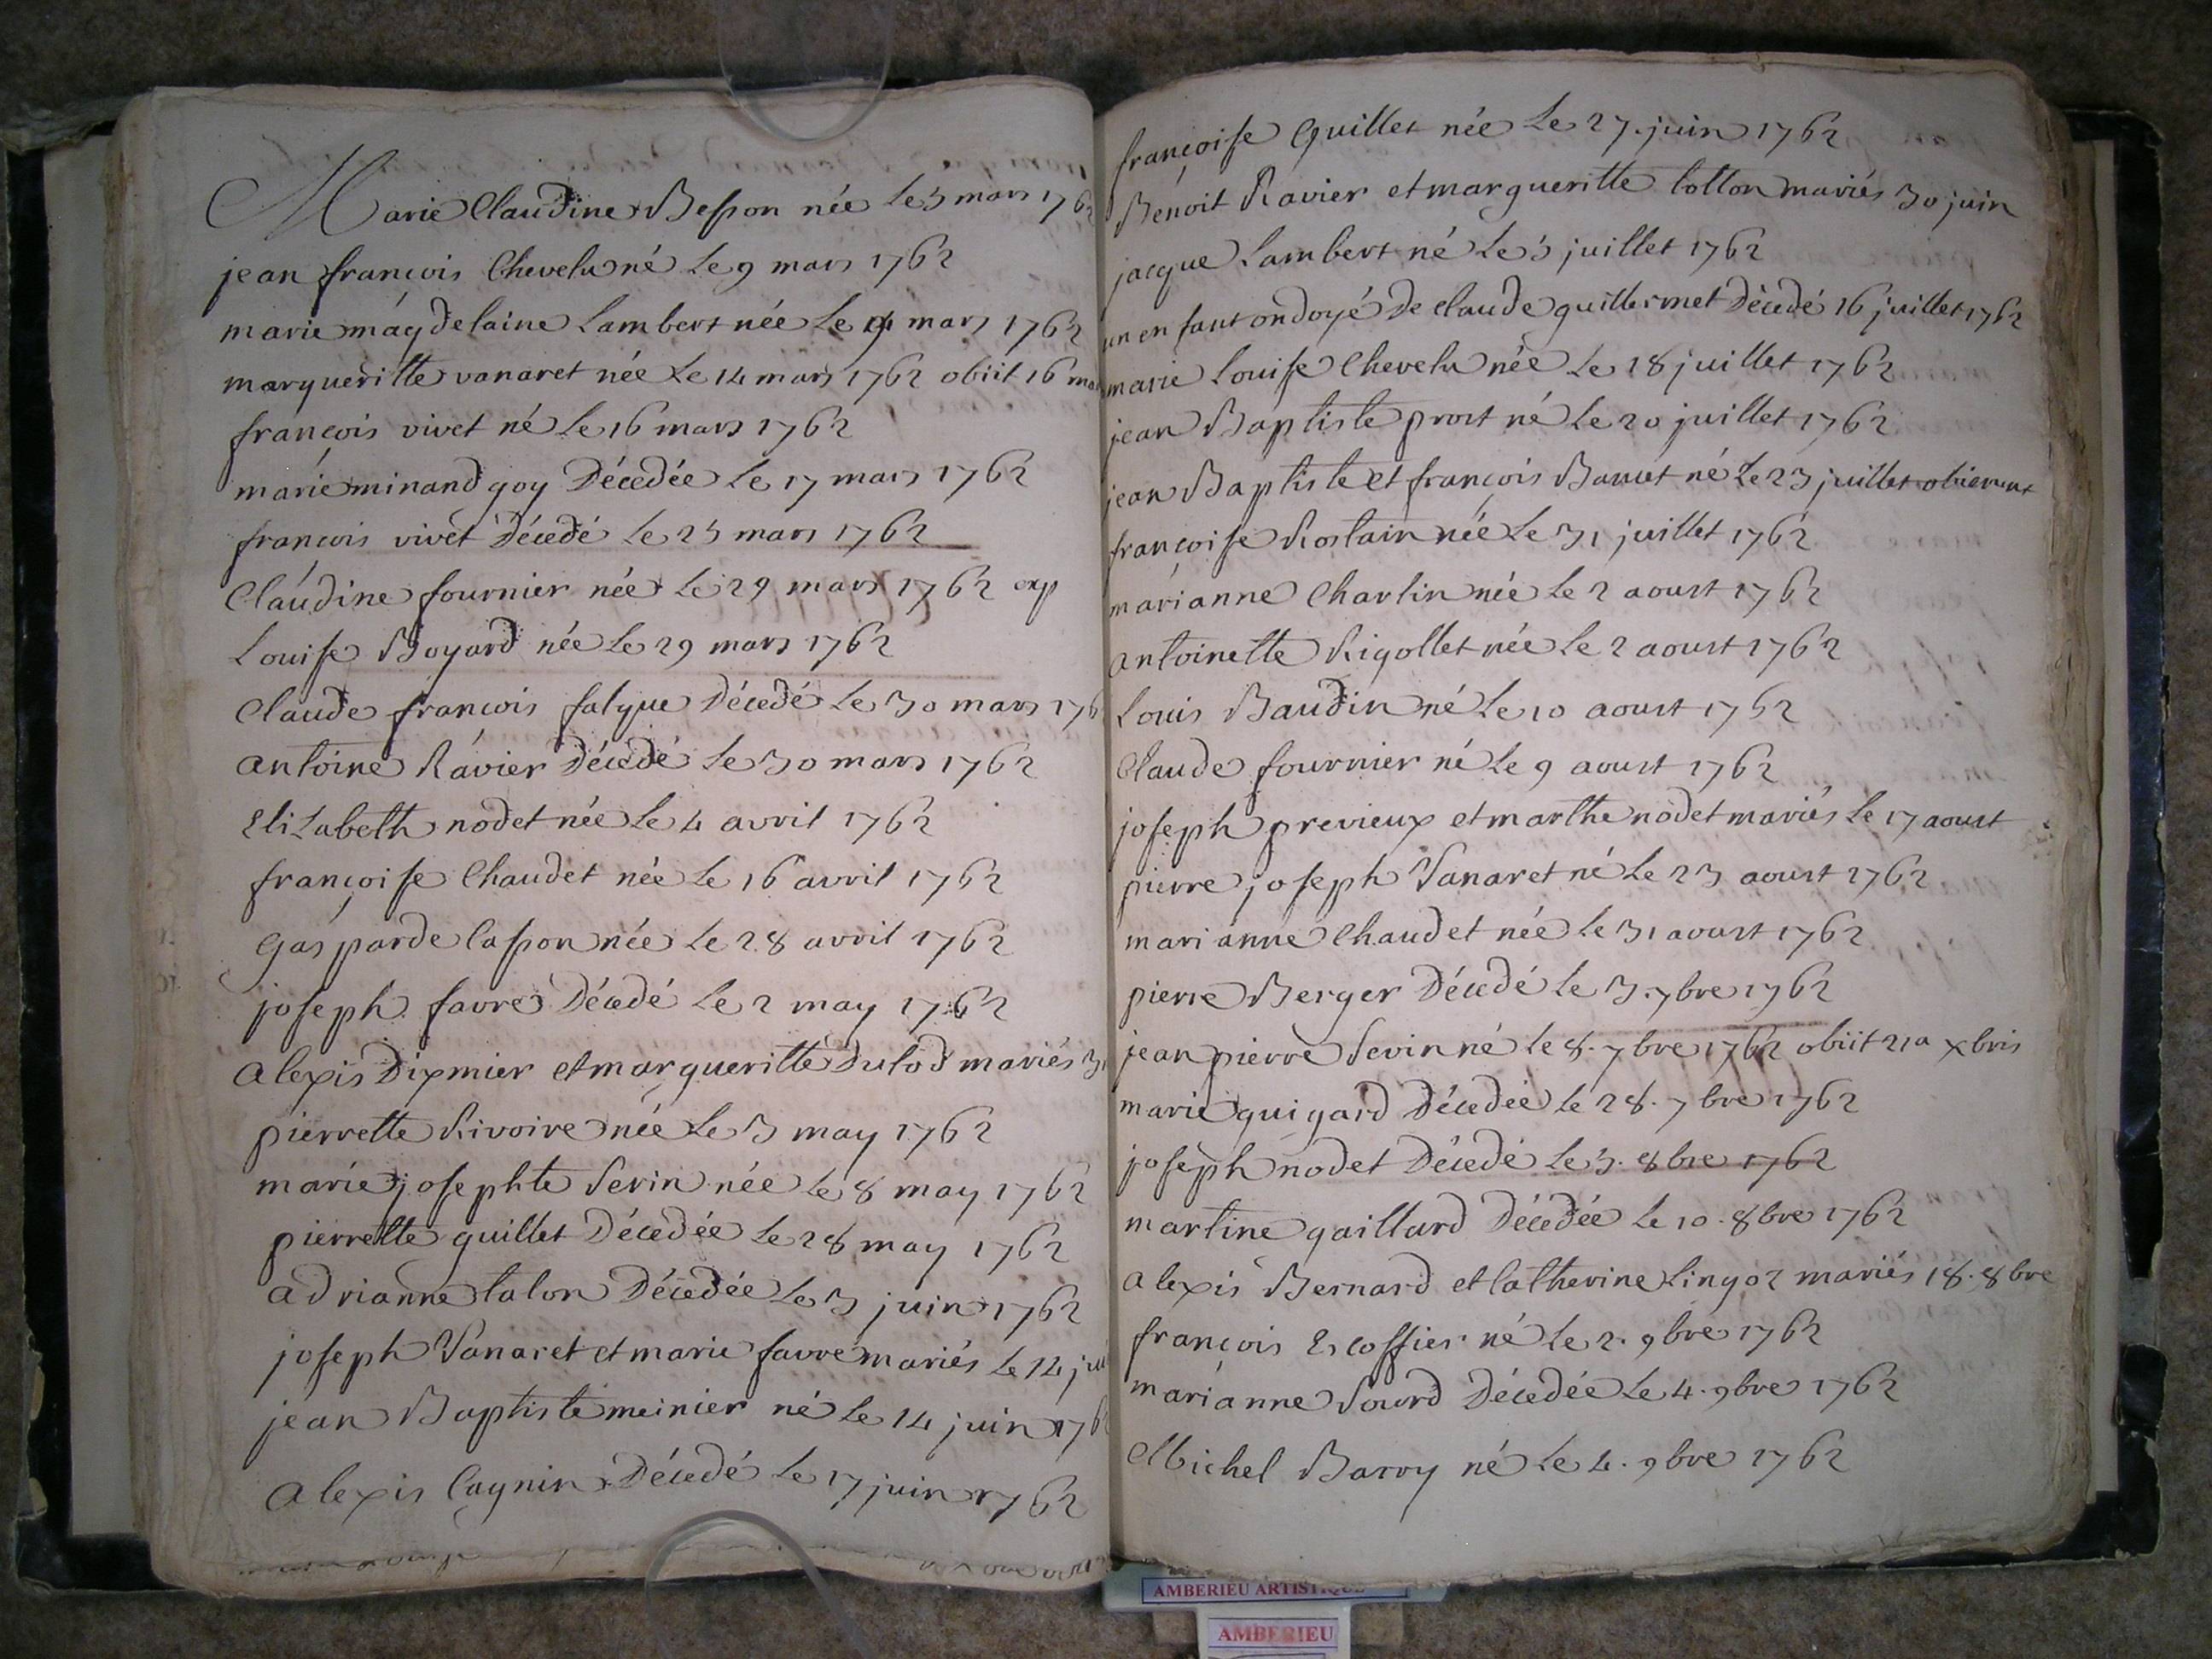 Marie Claudine Besson née le 5 mars 1762
jean françois Chevelu né le 9 mars 1762
marie magdelaine Lambert née le mars 1762
margueritte vanaret née le 14 mars 1762 obiit 16 mar
françois vivet né le 16 mars 1762
marie minand goy Décedée le 17 mars 1762
françois vivet Décedé le 25 mars 1762
Claudine fournier née le 29 mars 1762 exp
Louise Boyard née le 29 mars 1762
Claude françois falque Décedé le 30 mars 176
antoine Ravier Décedé le 30 mars 1762
Elizabeth nodet née le 4 avril 1762
françoise Chaudet née le 16 avril 1762
Gasparde Casson née le 28 avril 1762
joseph favre Décedé le 2 may 1762
alexis Dixmier et margueritte Dutod mariés 3
pierrette Rivoire née le 3 may 1762
marie josephte Sevin née le 8 may 1762
pierrette guillet Décedée le 28 may 1762
adrianne talon Décedée le 3 juin 1762
joseph Vanaret et marie favre mariés le 14 jui
jean Baptiste meinier né le 14 juin 176
alexis Cagnin Décedé le 17 juin 1762
françoise Guillet née le 27. juin 1762
Benoit Ravier et margueritte Cotton mariés 30 juin
jacque Lambert né le 5 juillet 1762
un enfant ondoyé de claude guillermet Décedé 16 juillet 1762
marie Louise Chevelu née le 18 juillet 1762
jean Baptiste prost né le 20 juillet 1762
jean Baptiste et françois né le 23 juillet obierunt
françoise Rostain née le 31 juillet 1762
marianne Charlin née le 2 aoust 1762
antoinette Rigollet née le 2 aoust 1762
Louis Baudin né le 10 aoust 1762
Claude fournier né le 9 aoust 1762
joseph previeux et marthe nodet mariés le 17 aoust
pierre joseph Vanaret né le 23 aoust 1762
marianne Chaudet née le 31 aoust 1762
pierre Berger Décedé le 3. 7bre 1762
jean pierre Sevin né le 8. 7bre 1762 obiit 21a xbris
marie guigard Décedée le 28. 7bre 1762
joseph nodet Décedé le 3. 8bre 1762
martine gaillard Décedée le 10. 8bre 1762
alexis Bernard et Catherine Lingoz mariés 18. 8bre
françois Escoffier né le 2. 9bre 1762
marianne Sourd Décedée le 4. 9bre 1762
Michel Barry né le 4. 9bre 1762
AMBERIEU ARTISTIQUE
AMBERIEU